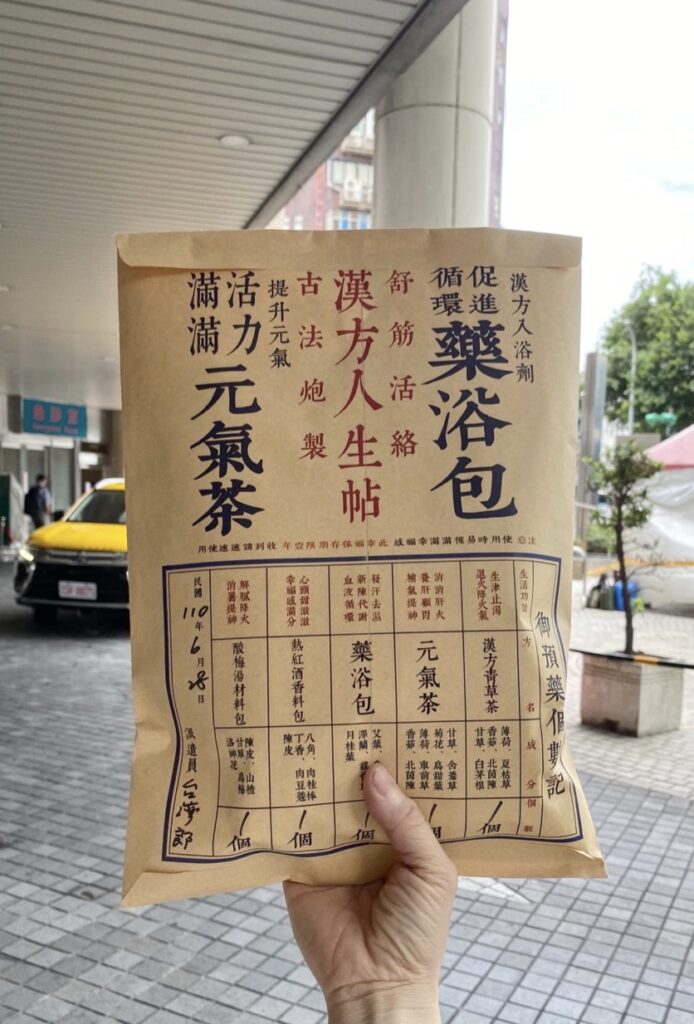 漢方入浴劑
促進
循環
藥浴包
舒筋活絡
漢方人生帖
古法炮製
提升元氣
活力
滿滿
元氣茶
注意 使用時易獲滿滿幸福感 此幸福保存期限壹年 收到請速速使用
御預藥個數記
生活功效
方名
成分
個數
生津止渴
退火降火氣
漢方青草茶
薄荷、夏枯草
香茹、北茵陳
甘草、白茅根
1個
消消肝火
養肝顧胃
補氣提神
元氣茶
甘草、含羞草
菊花、烏甜葉
薄荷、車前草
香茹、北茵陳
1個
發汗去濕
新陳代謝
血液循環
藥浴包
艾葉、
澤蘭、
月桂葉
1個
心頭甜滋滋
幸福感滿分
熱紅酒香料包
八角、肉桂棒
丁香、肉豆蔻
陳皮
1個
解膩降火
消暑提神
酸梅湯材料包
陳皮、山楂
甘草、烏梅
洛神花
1個
民國110年6月28日
派遣員 台灣郎
急診室
Emergency Room